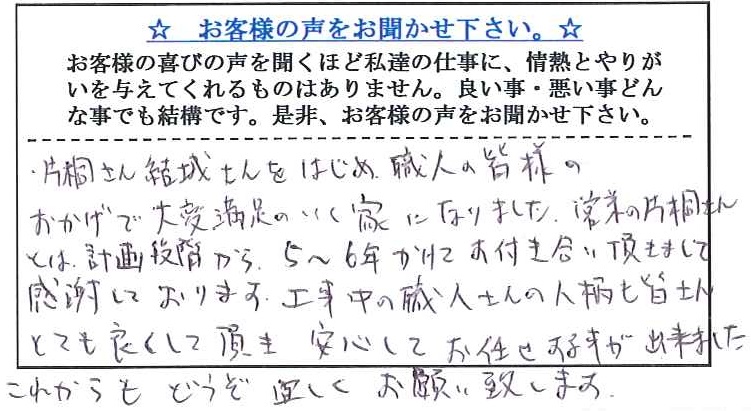 ☆ お客様の声をお聞かせ下さい。☆
お客様の喜びの声を聞くほど私達の仕事に、情熱とやりが
いを与えてくれるものはありません。良い事・悪い事どん
な事でも結構です。是非、お客様の声をお聞かせ下さい。
・片桐さん結城さんをはじめ、職人の皆様の
おかげで大変満足のいく家になりました。営業の片桐さん
とは、計画段階から、5〜6年かけてお付き合い頂きまして
感謝しております。工事中の職人さんの人柄も皆さん
とても良くして頂き 安心してお任せする事が出来ました
これからもどうぞ宜しくお願い致します。